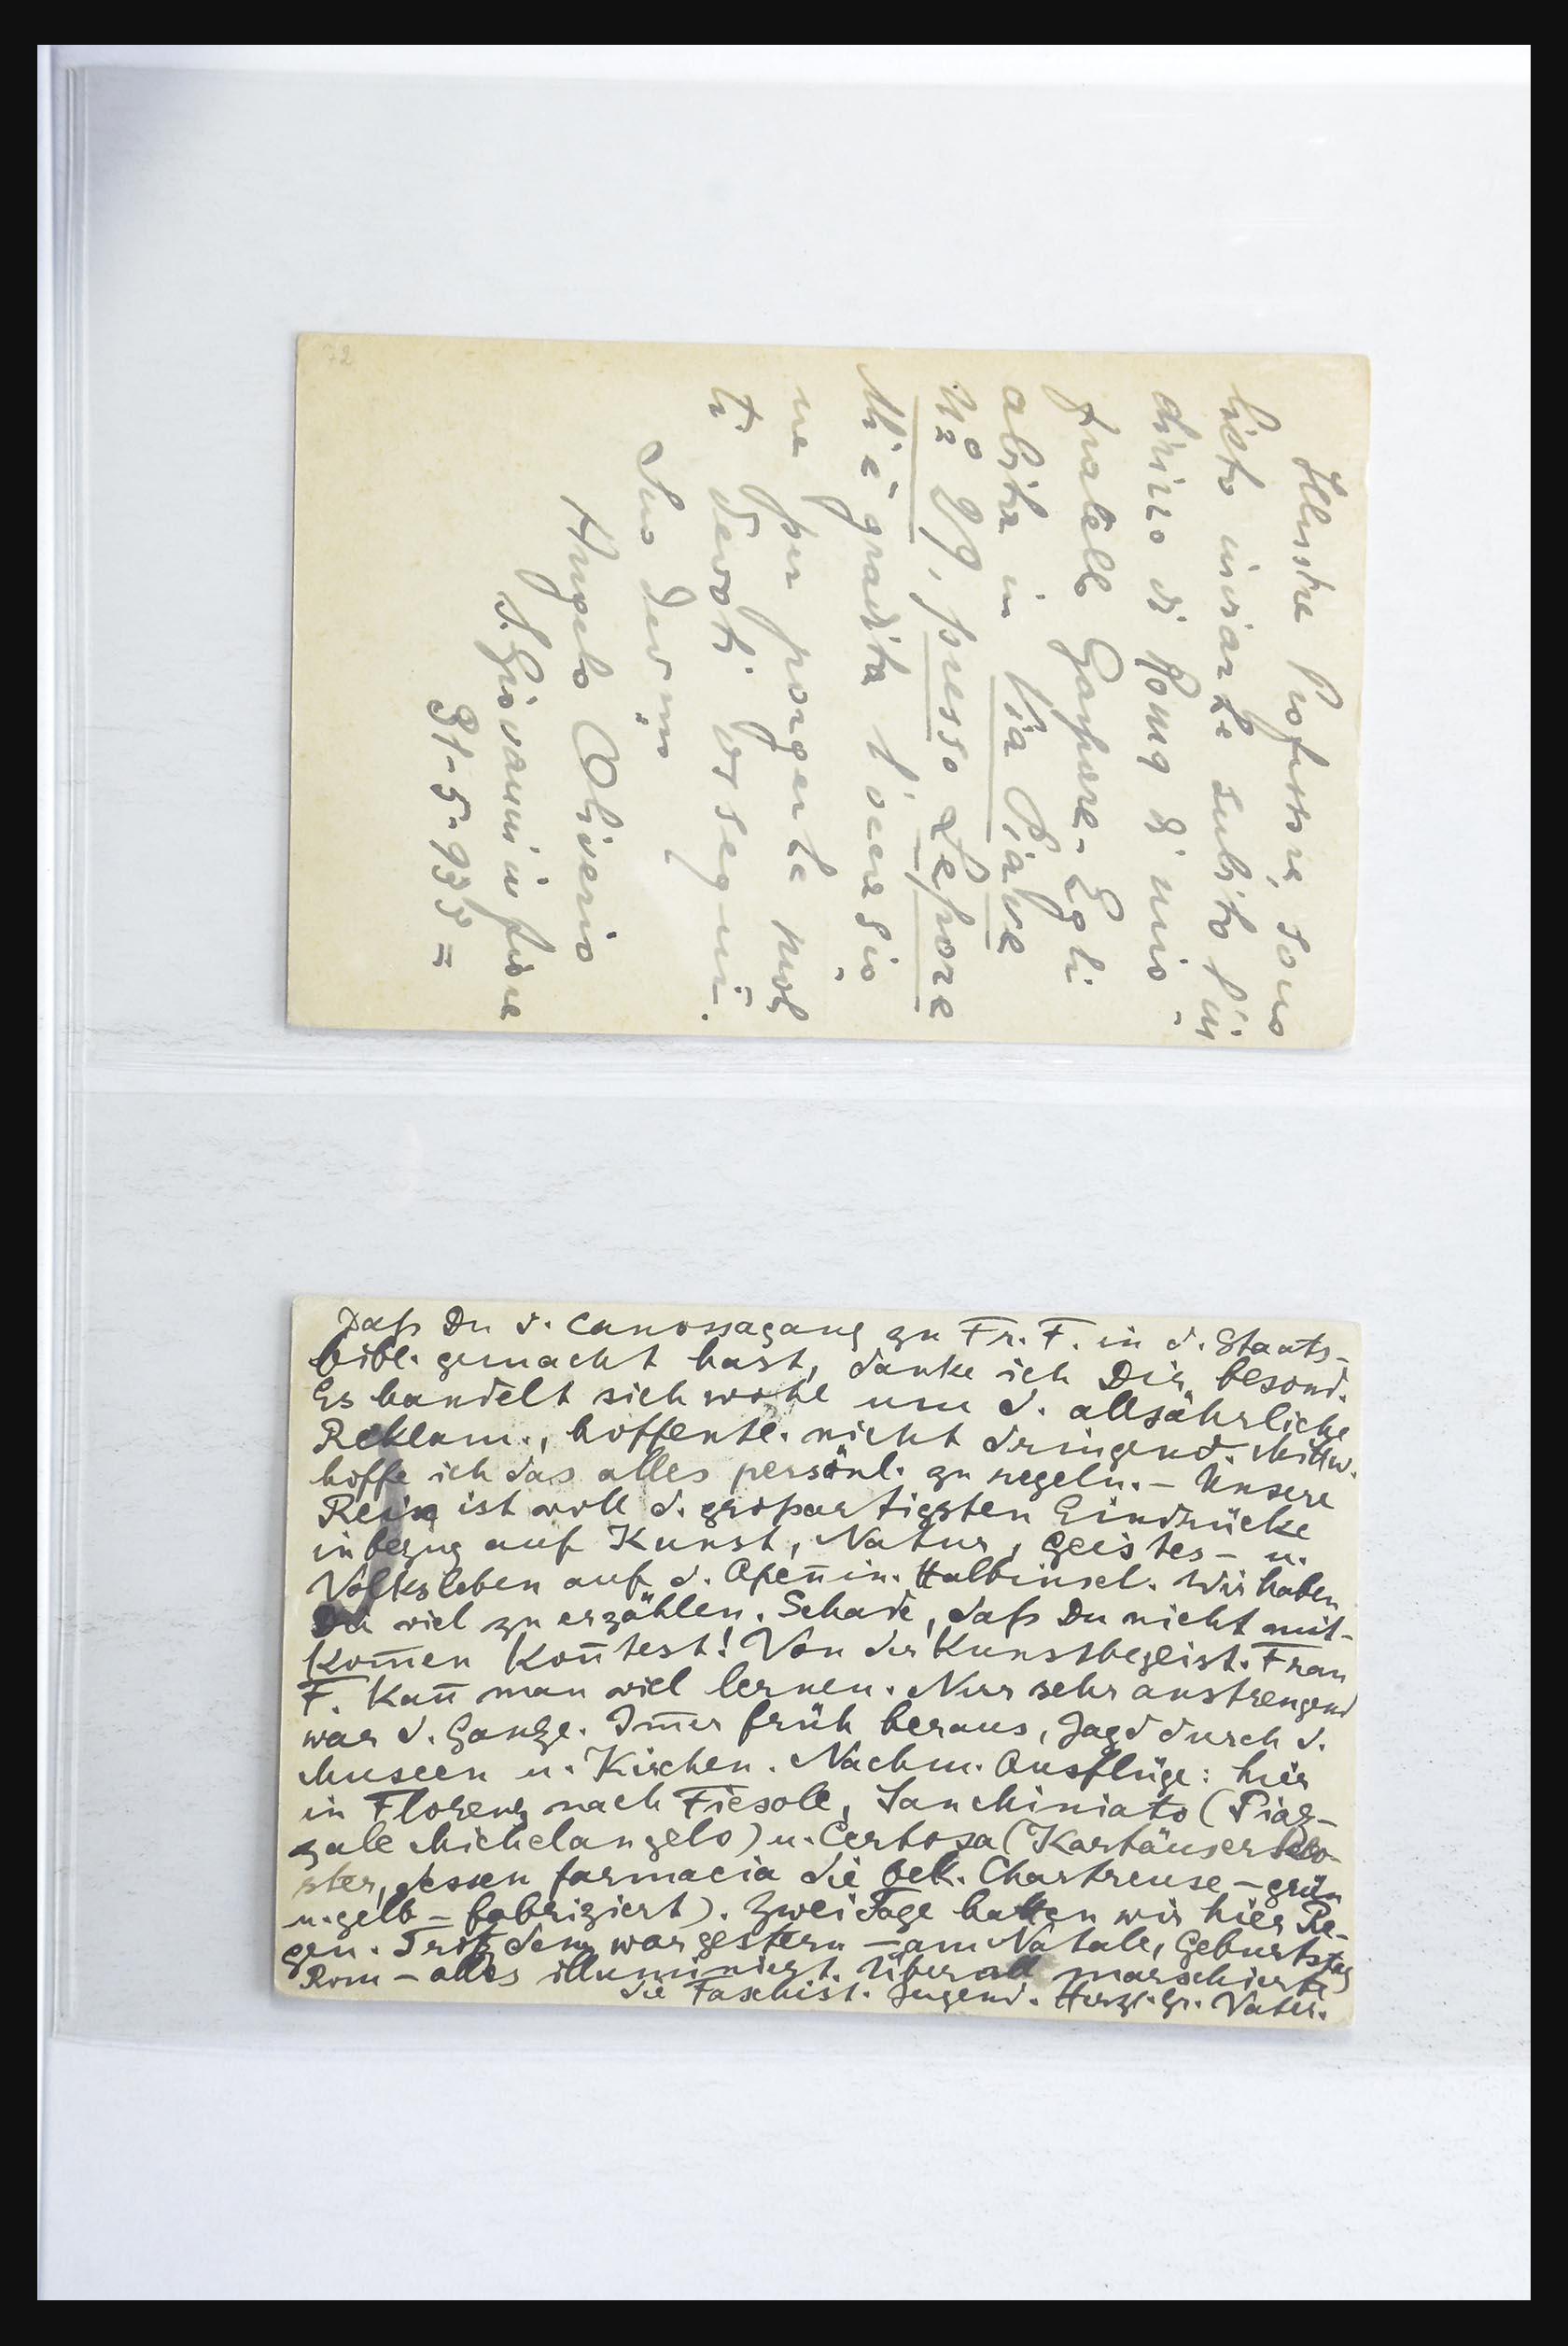 72
Illustre Professore, sono
lieto inviarLe subito l'in
dirizzo di Roma di mio
fratello Gaspare. Egli
abita in Via Piave
No 29, presso Lepore
Mi è gradita l'occasio
ne per porgerLe mol
ti devoti ossequii.
Suo dev.mo
Angelo Oliverio
S. Giovanni in Fiore
31-5-933 =
Daß Du d. Canossagang zu Fr. F. in d. Staats-
bibl. gemacht hast, danke ich Dir besond.
Es handelt sich wohl um d. alljährliche
Reklam., hoffentl. nicht dringend. Mittw.
hoffe ich das alles persönl. zu regeln. – Unsere
Reise ist voll d. großartigsten Eindrücke
in bezug auf Kunst, Natur, Geistes- u.
Volksleben auf d. Apen̅in. Halbinsel. Wir haben
Dir viel zu erzählen. Schade, daß Du nicht mit-
kom̅en kon̅test! Von der Kunstbegeist. Frau
F. kan̅ man viel lernen. Nur sehr anstrengend
war d. Ganze. Im̅er früh heraus, Jagd durch d.
Museen u. Kirchen. Nachm. Ausflüge: hier
in Florenz nach Fiesole, San Miniato (Piaz-
zale Michelangelo) u. Certosa (Kartäuserklo-
ster, dessen farmacia die bek. Chartreuse – grün
u. gelb – fabriziert). Zwei Tage hatten wir hier Re-
gen. Trotzdem war gestern – am Natale, Geburtstag
Rom – alles illuminiert. Überall marschierte
die Faschist. Jugend. Herzl. Gr. Vater.